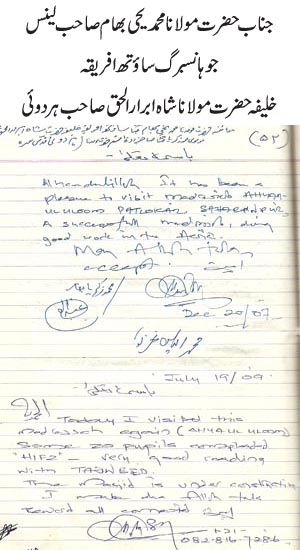 جناب حضرت مولانا محمد یحیی بھام صاحب لینس
جوہانسبرگ ساؤتھ افریقہ
خلیفہ حضرت مولانا شاہ ابرار الحق صاحب ہردوئی
(۵۲)
باسمہ تعالی
Alhamdulillah It has been a
pleasure to visit madrasah AHYAA-
UL ULOOM PATLOKAR, SAHARANPUR,
A successful madrasah, doing
good work in the Area
May Allah Ta'ala
accept. آمین
Dec 20/07
باسمہ تعالی
July 19/09
Today I visited this
madrasah again (AHYAA UL ULOOM)
Some 20 pupils completed
"HIFZ" - very good reading
WITH TAJWEED.
The Masjid is under construction
I make dua Allah take
reward all connected آمین
082-816-7286